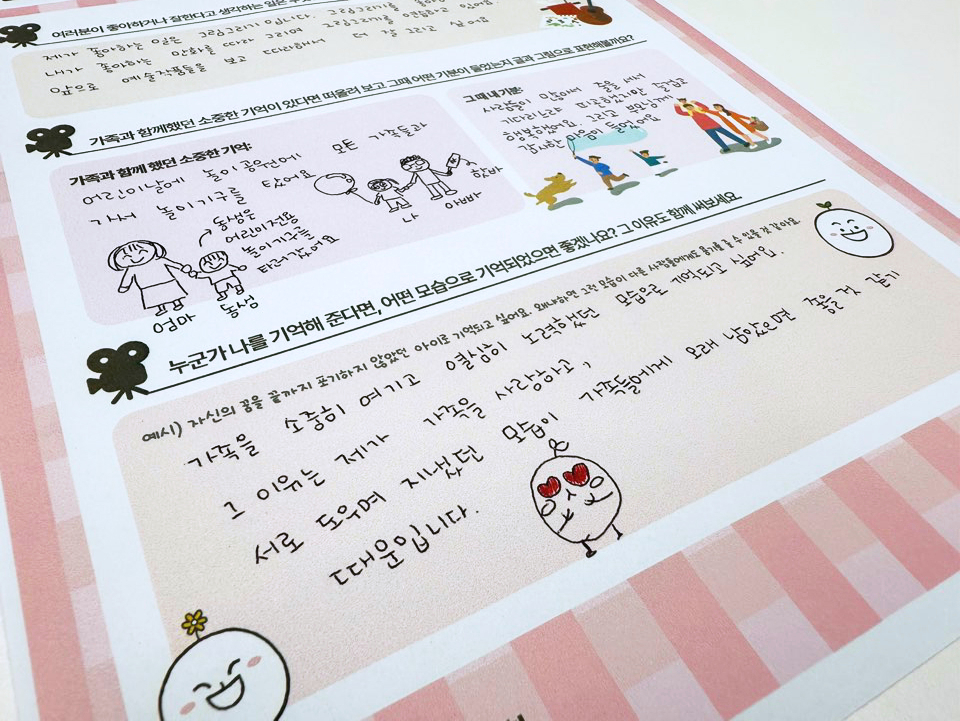 여러분이 좋아하거나 잘한다고 생각하는 일은
제가 좋아하는 일은 그림그리기 입니다. 그림그리기를 좋아해서
내가 좋아하는 만화를 따라 그리며 그림그리기를 연습하고 있어요.
앞으로 예술작품들을 보고 따라해서 더 잘 그리고 싶어요
가족과 함께했던 소중한 기억이 있다면 떠올려 보고 그때 어떤 기분이 들었는지 글과 그림으로 표현해볼까요?
가족과 함께 했던 소중한 기억:
어린이날에 놀이 공원에 모든 가족들과
가서 놀이기구를 탔어요
동생은
어린이전용
놀이기구를
타러갔어요
엄마
동생
나
아빠
그때 내 기분:
사람들이 많아서 줄을 서서
기다리느라 피곤했지만 즐겁고
행복했어요. 그리고 부모님께
감사한 마음이 들었어요
누군가 나를 기억해 준다면, 어떤 모습으로 기억되었으면 좋겠나요? 그 이유도 함께 써보세요.
예시) 자신의 꿈을 끝까지 포기하지 않았던 아이로 기억되고 싶어요. 왜냐하면 그런 모습이 다른 사람들에게도 용기를 줄 수 있을 것 같아요.
가족을 소중히 여기고 열심히 노력했던 모습으로 기억되고 싶어요.
그 이유는 제가 가족을 사랑하고,
서로 도우며 지냈던 모습이 가족들에게 오래 남았으면 좋을 것 같기
때문입니다.